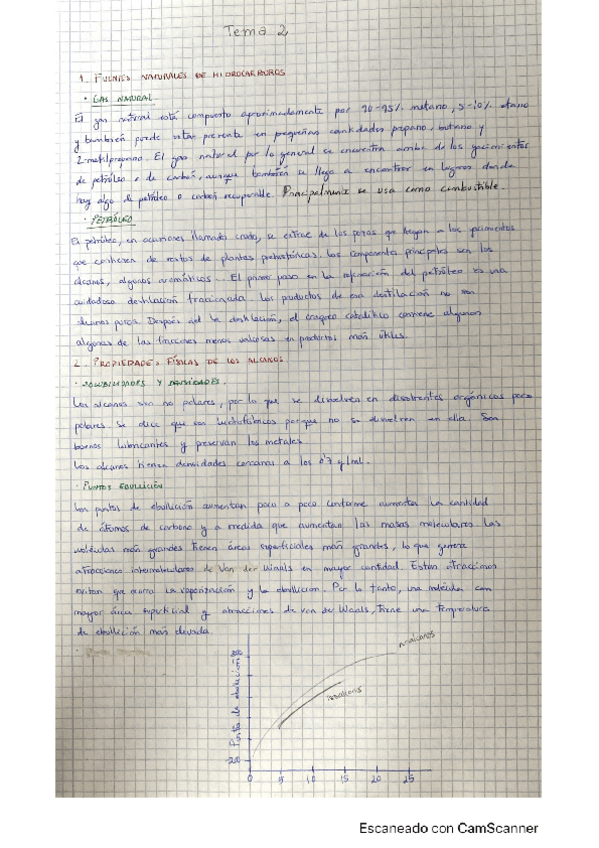 Tema 2
1. FUENTES NATURALES DE HIDROCARBUROS
· GAS NATURAL
El gas natural está compuesto aproximadamente por 90-95% metano, 5-10% etano
y también puede estar presente en pequeñas cantidades propano, butano y
2-metilpropano. El gas natural por lo general se encuentra arriba de los yacimientos
de petróleo o de carbón, aunque también se llega a encontrar en lugares donde
hay algo de petróleo o carbón recuperable. Principalmente se usa como combustible.
· PETRÓLEO
El petróleo, en ocasiones llamado crudo, se extrae de los pozos que llegan a los yacimientos
que contienen de restos de plantas prehistóricas. Los componentes principales son los
alcanos, algunos aromáticos. El primer paso en la refinación del petróleo es una
cuidadosa destilación fraccionada. Los productos de esa destilación no son
alcanos puros. Después de la destilación, el craqueo catalítico convierte algunos
algunas de las fracciones menos valiosas en productos más útiles.
2. PROPIEDADES FÍSICAS DE LOS ALCANOS
· SOLUBILIDADES Y DENSIDADES.
Los alcanos son no polares, por lo que se disuelven en disolventes orgánicos poco
polares. Se dice que son hidrofóbicos porque no se disuelven en ella. Son
buenos lubricantes y preservan los metales.
Los alcanos tienen densidades cercanas a los 0'7 g/ml.
· PUNTOS EBULLICIÓN
Los puntos de ebullición aumentan poco a poco conforme aumenta la cantidad
de átomos de carbono y a medida que aumentan las masas moleculares. Las
moléculas más grandes tienen áreas superficiales más grandes, lo que genera
atracciones intermoleculares de Van der Waals en mayor cantidad. Estas atracciones
evitan que ocurra la vaporización y la ebullición. Por lo tanto, una molécula con
mayor área superficial y atracciones de van der Waals, tiene una temperatura
de ebullición más elevada.
n-alcanos
isoalcanos
Punto de ebullición
0 5 10 15 20 25
Escaneado con CamScanner